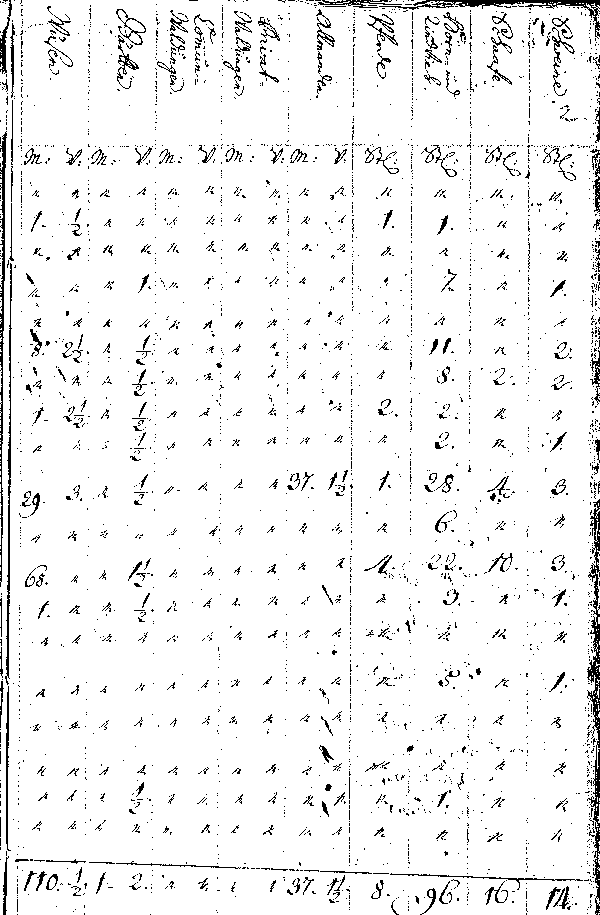 Wiesen. Gärten. Comun-Waldungen. Privat-Waldungen. Allmanden. Pferde. Horn und Viehe. Schafe. Schweine. 2
M: V. M: V. M: V. M: V. M: V. Stk. Stk. Stk. Stk.
" " " " " " " " " " " " " "
1. ½. " " " " " " " " 1. 1. " "
" " " " " " " " " " " " " "
" " " 1. " " " " " " " 7. " 1.
" " " " " " " " " " " " " "
8. 2½. " ½ " " " " " " " 11. " 2.
" " " ½ " " " " " " " 8. 2. 2.
1. 2½ " ½ " " " " " " 2. 2. " "
" " " ½ " " " " " " " 2. " 1.
29. 3. " ½ " " " " 37. 1½. 1. 28. 4. 3.
" " " " " " " " " " " 6. " "
68. " " 1½ " " " " " " 4. 22. 10. 3.
1. " " ½. " " " " " " " 3. " 1.
" " " " " " " " " " " " " "
" " " " " " " " " " " 5. " 1.
" " " " " " " " " " " " " "
" " " " " " " " " " " " " "
" " " ½ " " " " " " " 1. " "
" " " " " " " " " " " " " "
110. ½. 1. 2. " " " " 37. 1½. 8. 96. 16. 14.